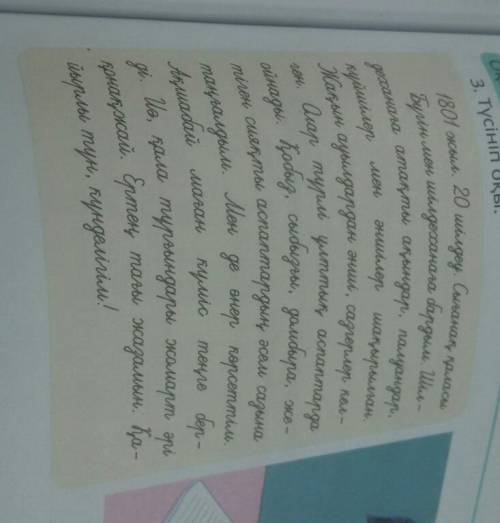 3. Түсініп оқы.
1801 жыл. 20 шілде. Сығанақ қаласы
Бүгін мен шілдеханаға бардым. Шіл-
деханаға атақты ақындар, палуандар,
күйшілер мен әншілер шақырылған.
Жақын ауылдардан әнші, сазгерлер кел-
ген. Олар түрлі ұлттық аспаптарда
ойнады. Қобыз, сыбызғы, домбыра, же-
тіген сияқты аспаптардың әсем сазына
таңғалдым. Мен де өнер көрсеттім.
Ақшабай маған күміс теңге бер-
ді. Иә, қала тұрғындары жомарт әрі
қонақжай. Ертең тағы жазамын. Қа-
йырлы түн, күнделігім!